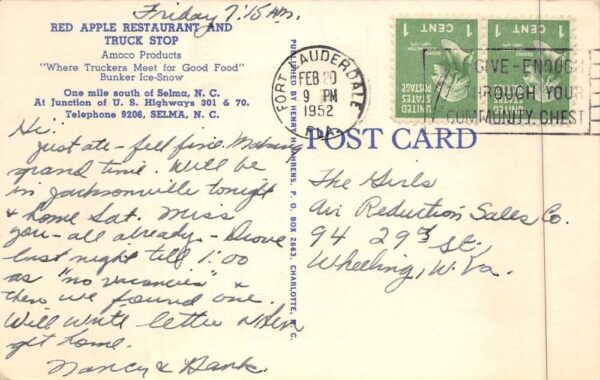 Friday 7:15 AM.
RED APPLE RESTAURANT AND
TRUCK STOP
Amoco Products
"Where Truckers Meet for Good Food"
Bunker Ice-Snow
One mile south of Selma, N. C.
At Junction of U. S. Highways 301 & 70.
Telephone 9206, SELMA, N. C.
Hi:
Just ate - feel fine. Making
grand time. Will be
in Jacksonville tonight
& home Sat. Miss
you-all already. Drove
last night till 1:00
as "no vacancies" &
then we found one.
Will write letter when
get home.
Nancy & Hank.
PUBLISHED BY HENRY H. AHRENS, P. O. BOX 2663, CHARLOTTE, N. C.
FORT LAUDERDALE
FEB 20
9 PM
1952
FLA.
1 CENT 1
UNITED STATES POSTAGE
1 CENT 1
UNITED STATES POSTAGE
GIVE-ENOUGH
THROUGH YOUR
COMMUNITY CHEST
POST CARD
The Girls
Air Reduction Sales Co.
94 29th St.,
Wheeling, W. Va.